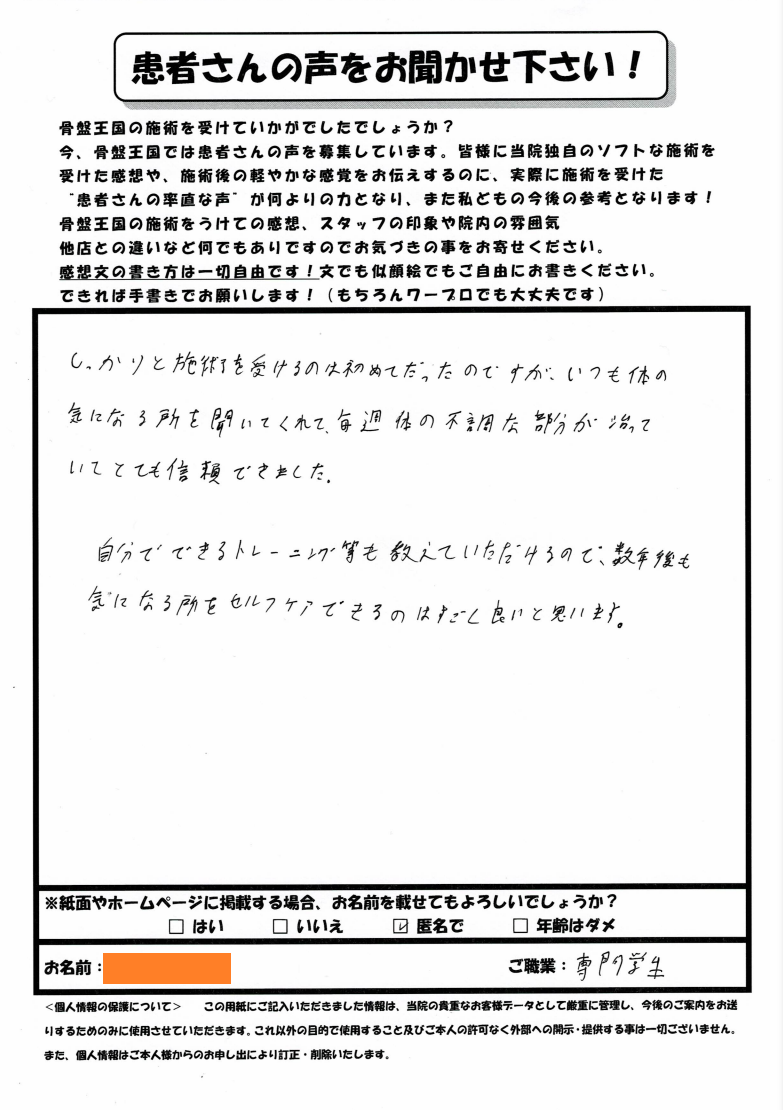 患者さんの声をお聞かせ下さい！
骨盤王国の施術を受けていかがでしたでしょうか？
今、骨盤王国では患者さんの声を募集しています。皆様に当院独自のソフトな施術を
受けた感想や、施術後の軽やかな感覚をお伝えするのに、実際に施術を受けた
“患者さんの率直な声”が何よりの力となり、また私どもの今後の参考となります！
骨盤王国の施術をうけての感想、スタッフの印象や院内の雰囲気
他店との違いなど何でもありですのでお気づきの事をお寄せください。
感想文の書き方は一切自由です！文でも似顔絵でもご自由にお書きください。
できれば手書きでお願いします！（もちろんワープロでも大丈夫です）
しっかりと施術を受けるのは初めてだったのですが、いつも体の
気になる所を聞いてくれて、毎週体の不調な部分が治って
いてとても信頼できました。
自分でできるトレーニング等も教えていただけるので、数年後も
気になる所をセルフケアできるのはすごく良いと思います。
※紙面やホームページに掲載する場合、お名前を載せてもよろしいでしょうか？
□ はい □ いいえ ☑ 匿名で □ 年齢はダメ
お名前： ご職業：専門学生
＜個人情報の保護について＞ この用紙にご記入いただきました情報は、当院の貴重なお客様データとして厳重に管理し、今後のご案内をお送
りするためのみに使用させていただきます。これ以外の目的で使用すること及びご本人の許可なく外部への開示・提供する事は一切ございません。
また、個人情報はご本人様からのお申し出により訂正・削除いたします。